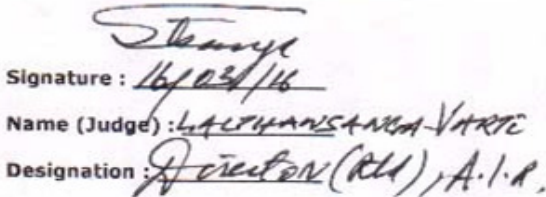 Signature : 16/03/16
Name (Judge) : LALTHANSANGA VARTE
Designation : Director (Rtd), A.I.R.